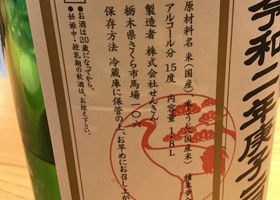 令和二年庚子
原材料名 米（国産）、米こうじ（国産米）
アルコール分 15度 内容量 1.8L
製造者 株式会社せんきん
栃木県さくら市馬場一〇六
保存方法 冷蔵庫に保管の上、お早めにお召し上が
●お酒は20歳になってから。
妊娠中・授乳期の飲酒は、お控え下さい。